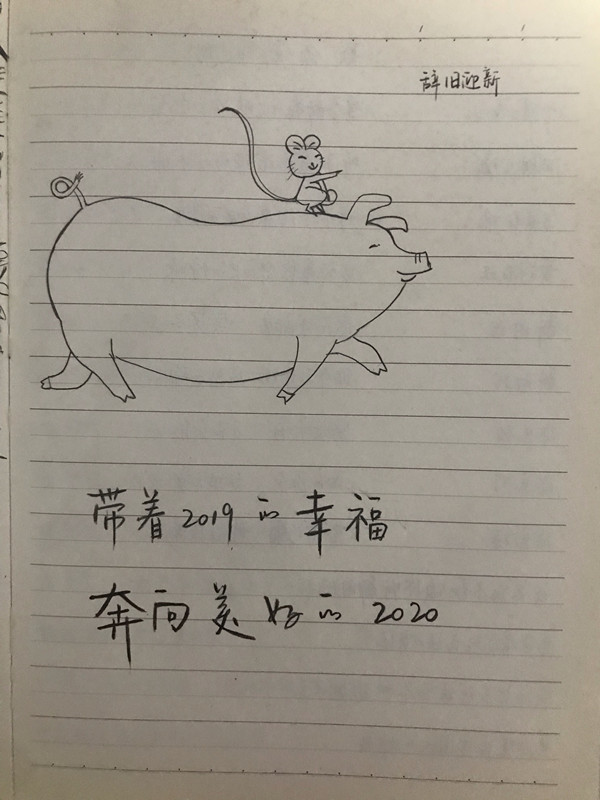 辞旧迎新
带着2019的幸福
奔向美好的2020